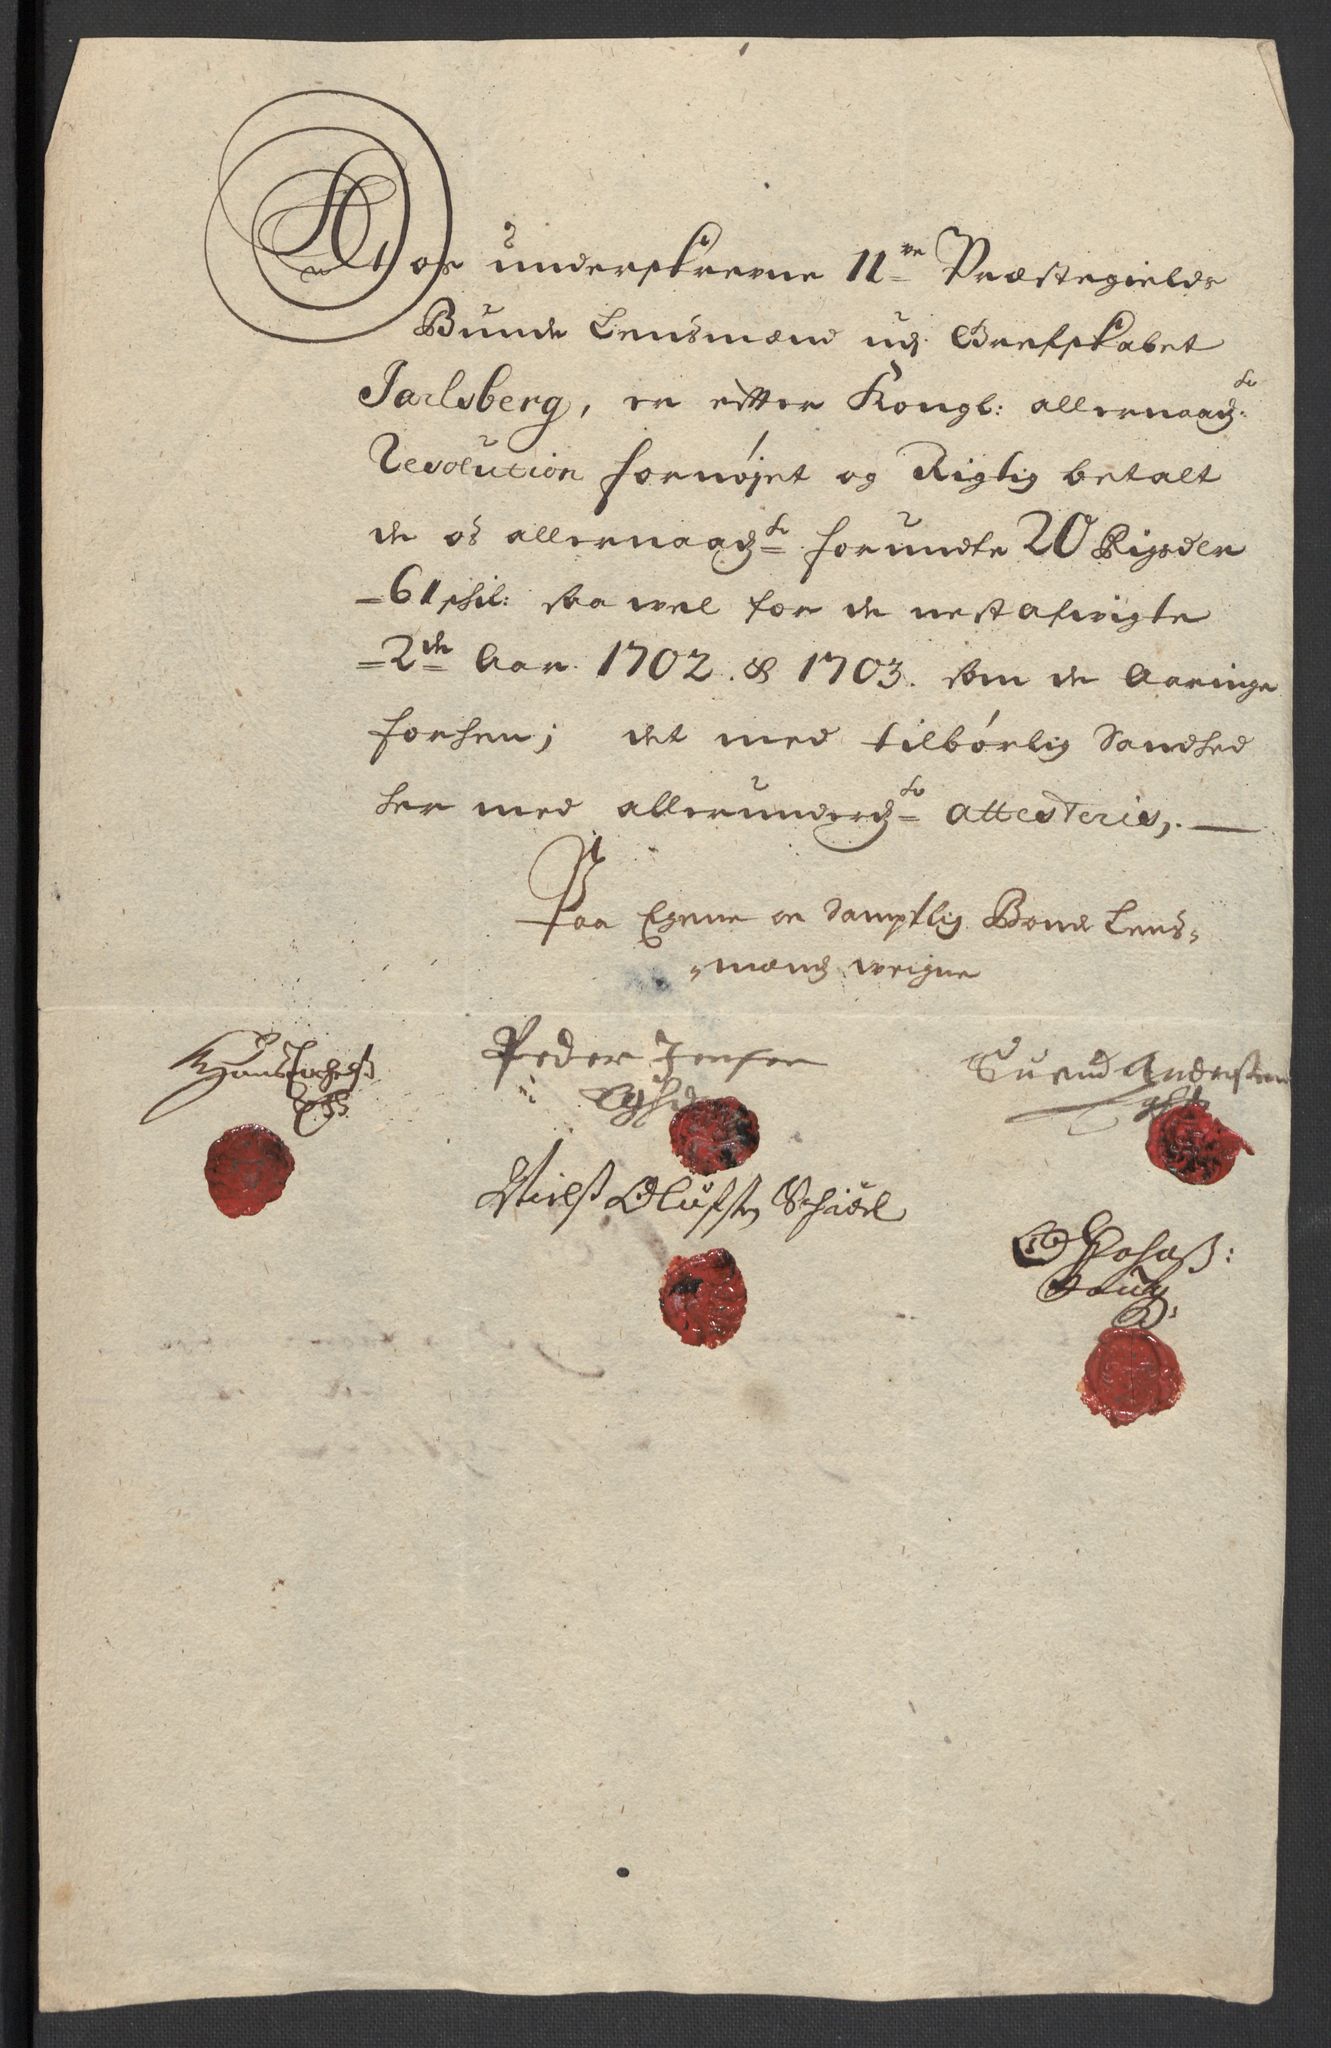 At os underskrefne 11ve Præstegields
Bunde Lensmænd udj Grefskabet
Jarlsberg, er efter Kongl: allernaadste
Resolution fornøjet og Rigtig betalt
de os allernaadste forundte 20 Rigsdler
61 shil: saa vel for de nest afvigte
2de Aar 1702. & 1703. som de Aaringe
forhen; det med tilbørlig Sandhed
her med allerunderdste attesteris,.
Paa Egene oc Samptlig Bonde Lens-
mænds veigne
Peder Jensen
Suend Andersen
Nielß Olufsen